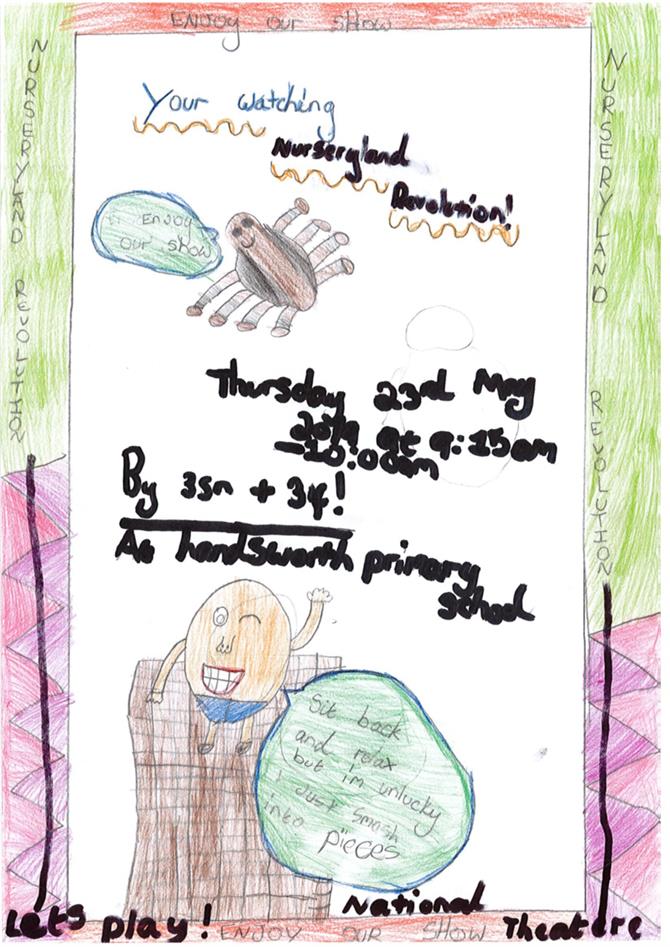 ENJOY OUR SHOW
NURSERYLAND REVOLUTION
NURSERYLAND REVOLUTION
Your watching
Nurseryland
Revolution!
ENJOY
OUR SHOW
Thursday 23rd May
2019 at 9:15am
-10:00am
By 3sn + 34!
At handsworth primary
school
Sit back
and relax
but i'm unlucky
i Just smash
into pieces
National
Lets play! ENJOY OUR SHOW Theatere